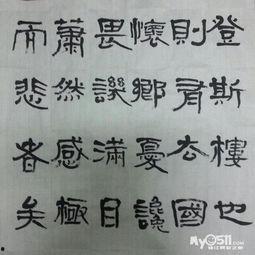 登斯樓也
則有去國
懷鄉憂讒
畏譏滿目
蕭然感極
而悲者矣
My0511.com